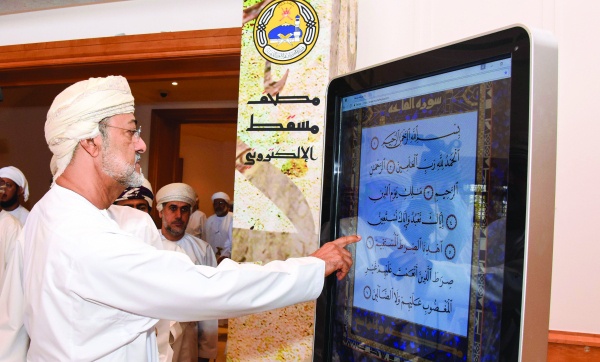 مصحف
مسقط
الإلكتروني
سورة الفاتحة
بسم الله الرحمن الرحيم ١
الحمد لله رب العالمين ٢ الرحمن
الرحيم ٣ ملك يوم الدين
٤ إياك نعبد وإياك نستعين
٥ اهدنا الصراط المستقيم ٦
صراط الذين أنعمت عليهم غير
المغضوب عليهم ولا الضالين ٧